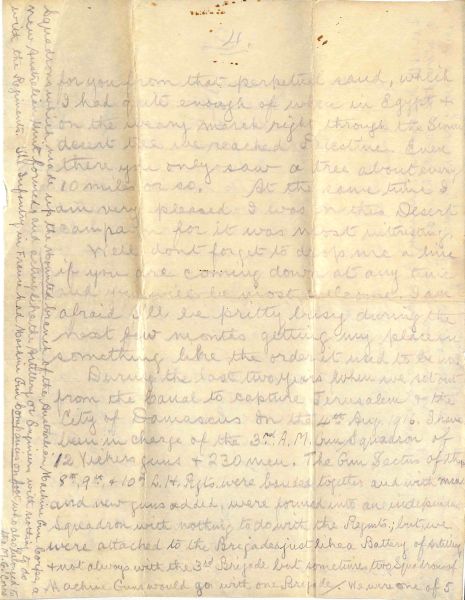 4.
for you from that perpetual sand, which
I had quite enough of when in Egypt &
on the weary march right through the Sinai
desert till we reached Palestine. Even
there you only saw a tree about every
10 miles or so. At the same time I
am very pleased I was on this Desert
Campaign for it was most interesting.
Well dont forget to drop me a line
if you are coming down at any time
and you will be most welcome. I am
afraid I'll be pretty busy during the
next few months getting my place in
something like the order it used to be in.
During the last two Years when we set out
from the Canal to capture Jerusalem & the
City of Damascus on the 4th Aug 1916. I have
been in charge of the 3rd A. M. Gun Squadron of
12 Vickers guns & 230 men. The Gun Sections of the
8th, 9th & 10th L. H. Rgts. were banded together and with men
and new guns added, were formed into an independent
Squadron with nothing to do with the Regmts; but we
were attached to the Brigades just like a Battery of Artillery
& not always with the 3rd Brigade but sometimes two Squadrons of
Machine Guns would go with one Brigade. We were one of 5
Squadrons which made up the Mounted branch of the Australian Machine Gun Corps, a
new Australian Unit formed, and acting like the Artillery or Engineers, with nothing to do
with the Regiments. The Infantry in France had Machine Gun Companies on foot who also belonged to
the M. G. Corps